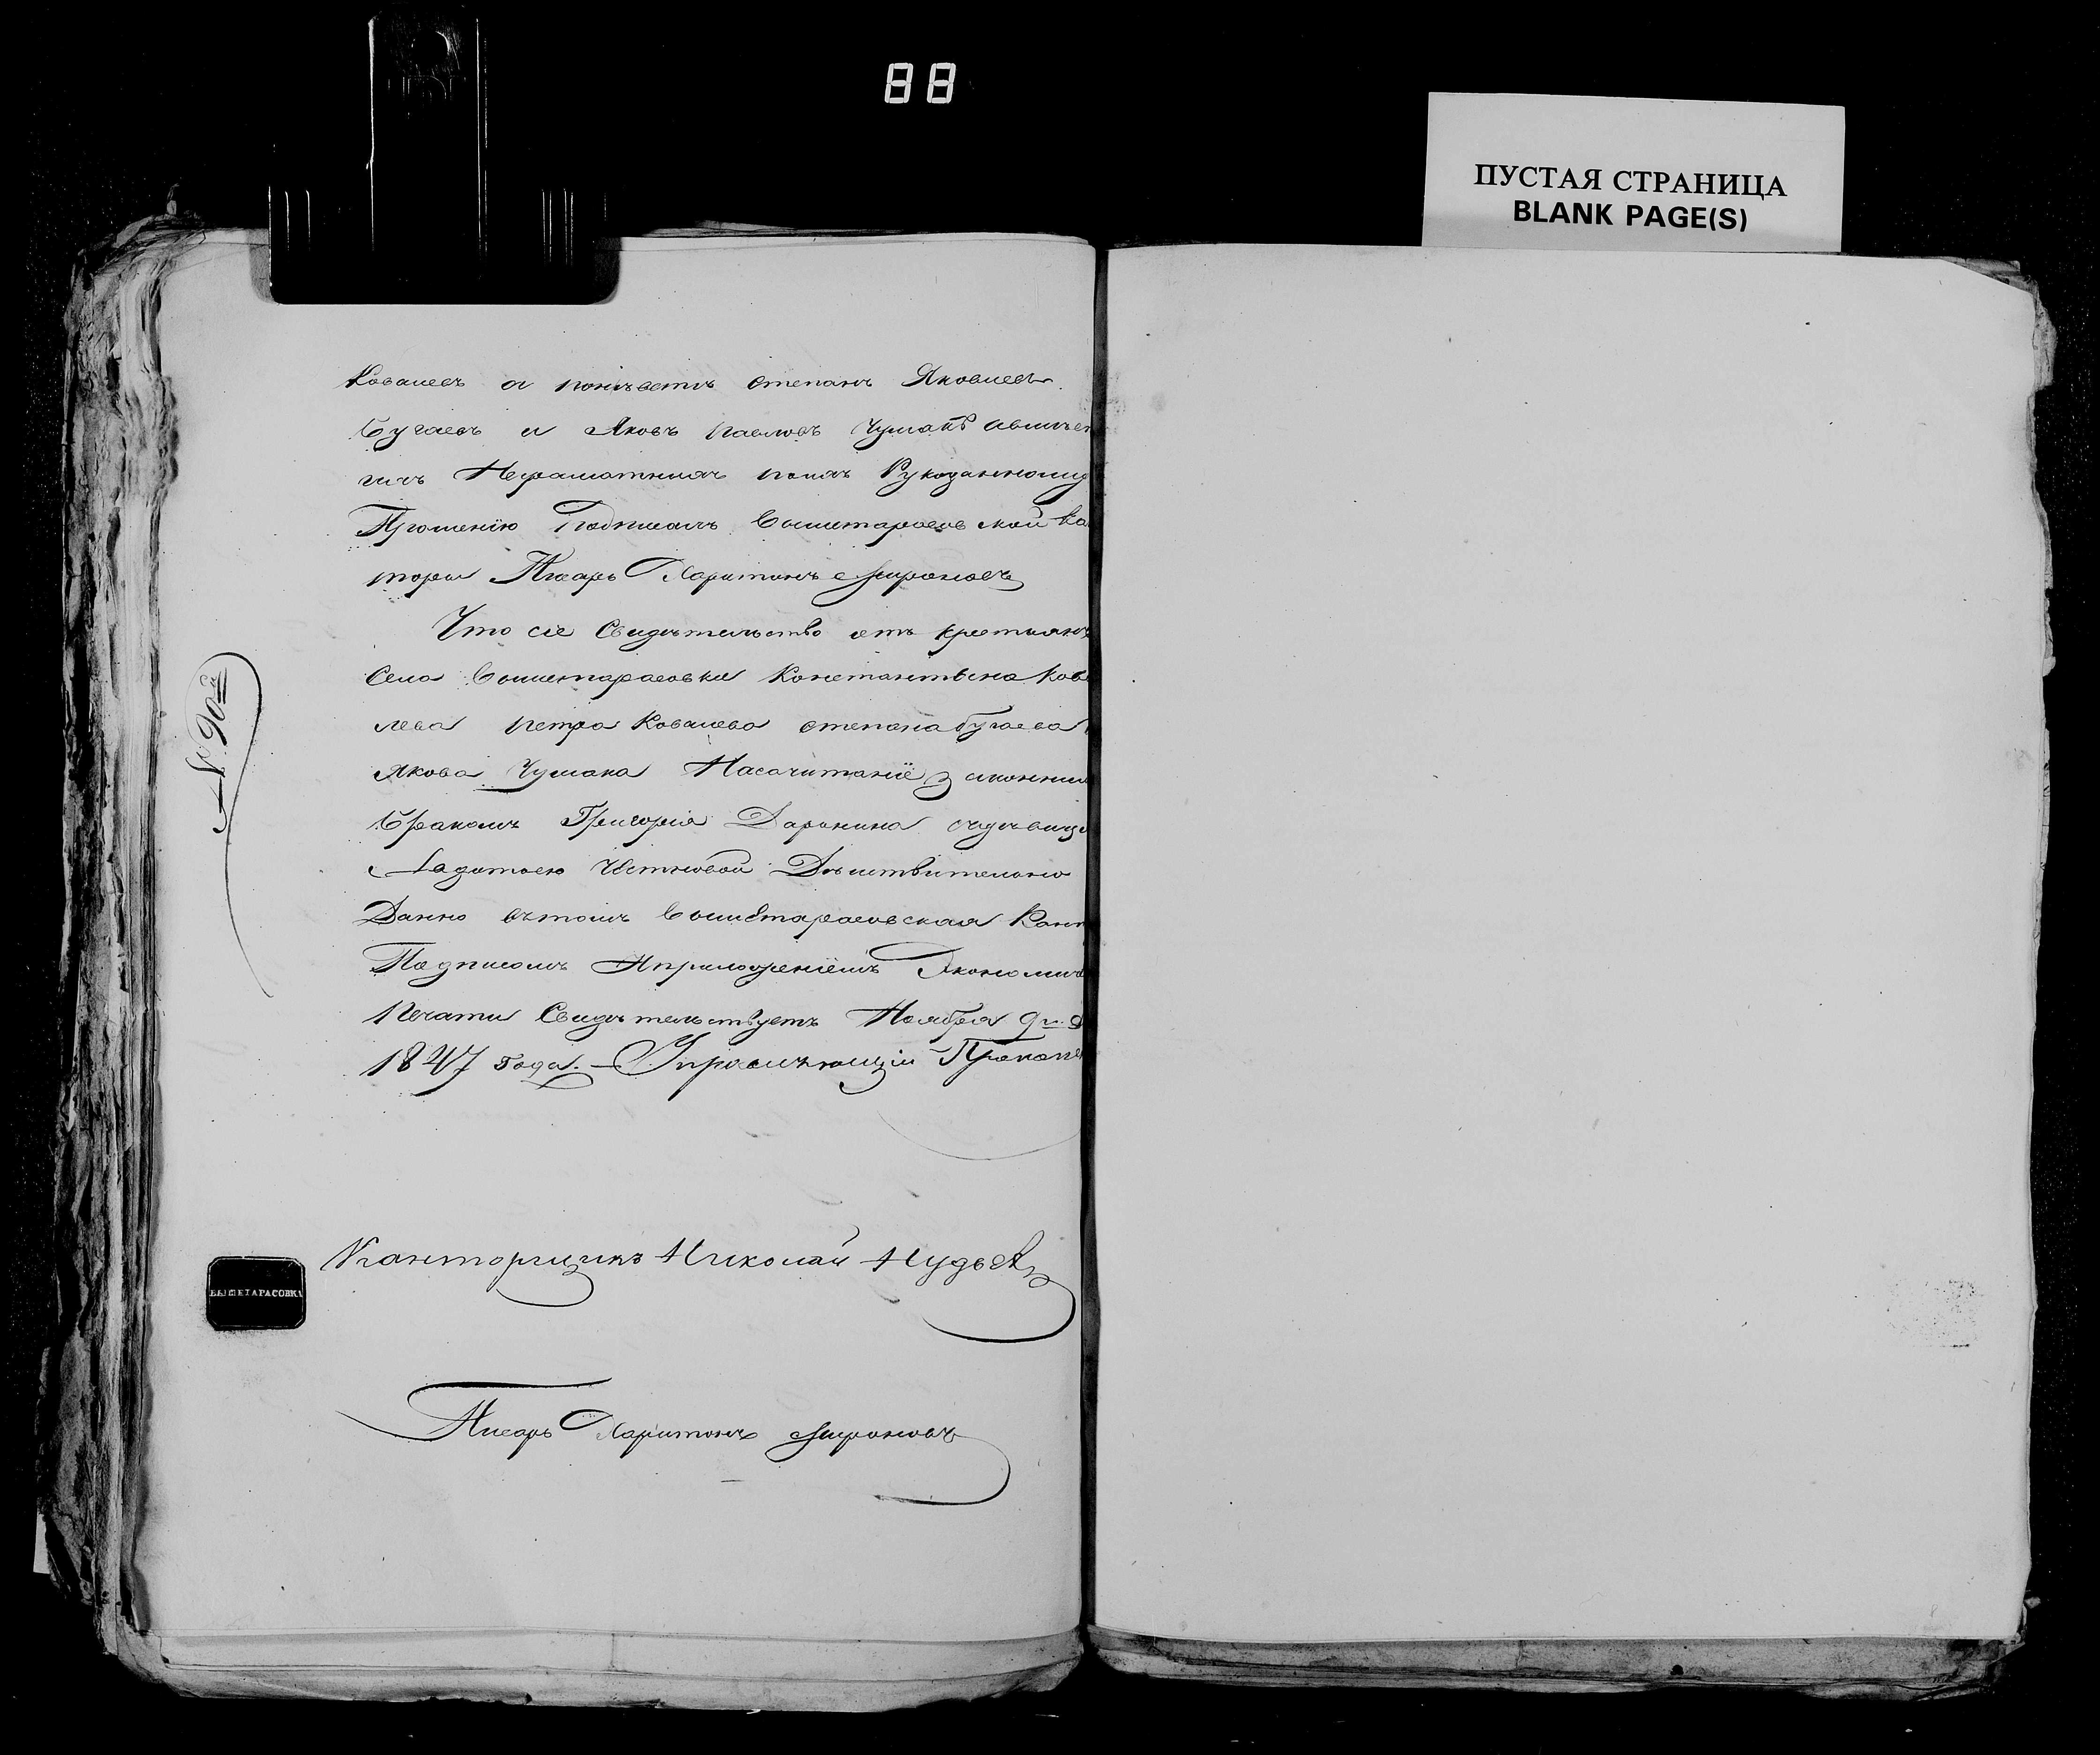 88
ПУСТАЯ СТРАНИЦА
BLANK PAGE(S)
Ковалевъ а понихъ Степанъ Яковлевъ
Бугаевъ и Яковъ Павловъ Чумакъ
Неграмотныхъ поихъ Рукоданному
Прошенію Подписалъ Вышетарасовской Ко
торы Писарь Харитонъ Мироновъ
Что сіе Свидѣтельство отъ крестьянъ
Села Вышетарасовки Константина Кова
лева Петра Ковалева Степана Бугаева
Якова Чумака Насочитаніе законнымъ
Бракомъ Григорія Даронина
Данно вътомъ Вышетарасовская Конт
Подписомъ Априложеніемъ Экономич
Печати Свидѣтельствуетъ Ноября 9го д
1847 Года. — Управляющій Прокопе
№ 90й
Канторщикъ Николай Нудьга
ВЫШЕТАРАСОВКИ
Писарь Харитонъ Мироновъ